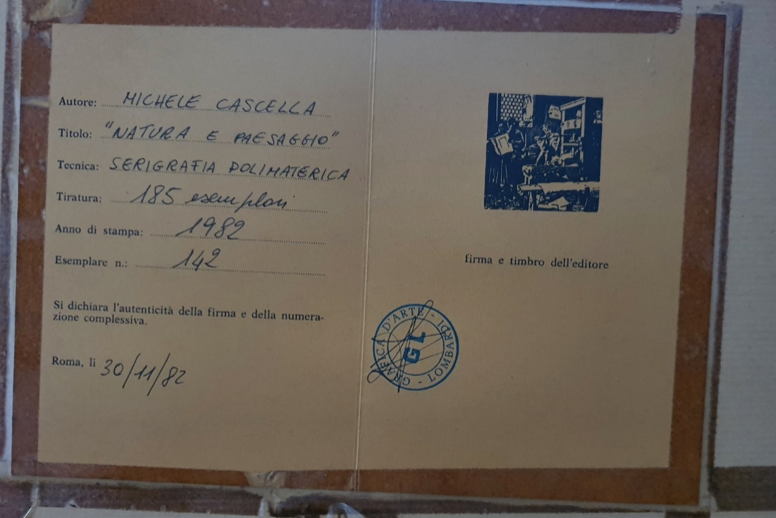 Autore: MICHELE CASCELLA
Titolo: "NATURA E PAESAGGIO"
Tecnica: SERIGRAFIA POLIMATERICA
Tiratura: 185 esemplari
Anno di stampa: 1982
Esemplare n.: 142
Si dichiara l'autenticità della firma e della numera-
zione complessiva.
Roma, lì 30/11/82
firma e timbro dell'editore
GRAFICA D'ARTE - LOMBARDI -
GL